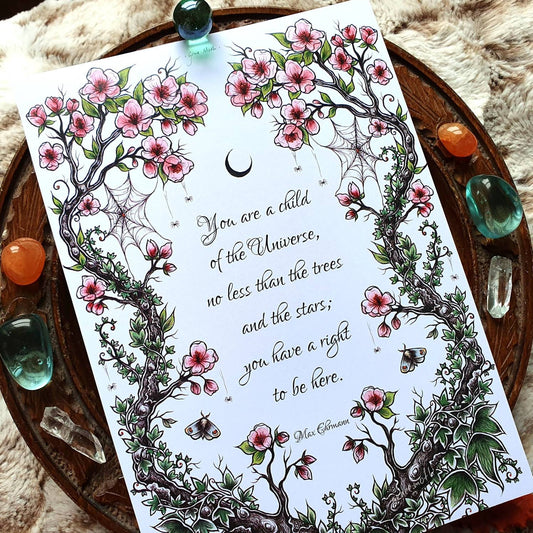 You are a child
of the Universe,
no less than the trees
and the stars;
you have a right
to be here.
Max Ehrmann